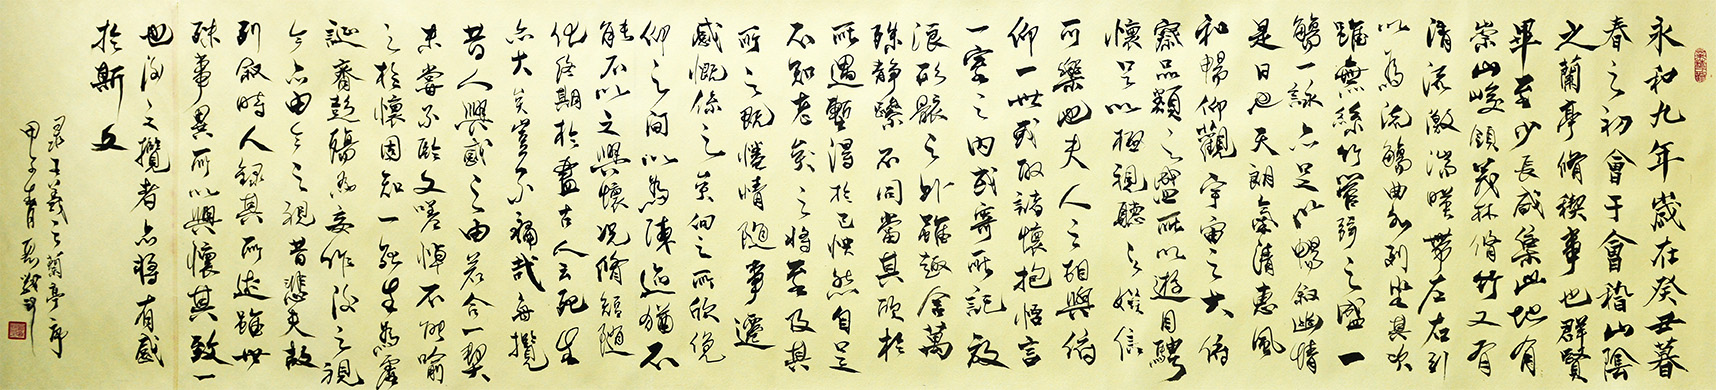 永和九年歲在癸丑暮
春之初會于會稽山陰
之蘭亭脩禊事也群賢
畢至少長咸集此地有
崇山峻領茂林脩竹又有
清流激湍暎帶左右引
以為流觴曲水列坐其次
雖無絲竹管弦之盛一
觴一詠亦足以暢敘幽情
是日也天朗氣清惠風
和暢仰觀宇宙之大俯
察品類之盛所以遊目騁
懷足以極視聽之娛信
可樂也夫人之相與俯
仰一世或取諸懷抱悟言
一室之內或寄所託放
浪形骸之外雖趣舍萬
殊靜躁不同當其欣於
所遇暫得於己怏然自足
不知老之將至及其
所之既惓情隨事遷
感慨係之矣向之所欣俛
仰之間以為陳迹猶不
能不以之興懷況脩短隨
化終期於盡古人云死生
亦大矣豈不痛哉每攬
昔人興感之由若合一契
未嘗不臨文嗟悼不能喻
之於懷固知一死生為虛
誕齊彭殤為妄作後之視
今亦由今之視昔悲夫故
列敘時人錄其所述雖世
殊事異所以興懷其致一
也後之攬者亦將有感
於斯文
录王羲之蘭亭序